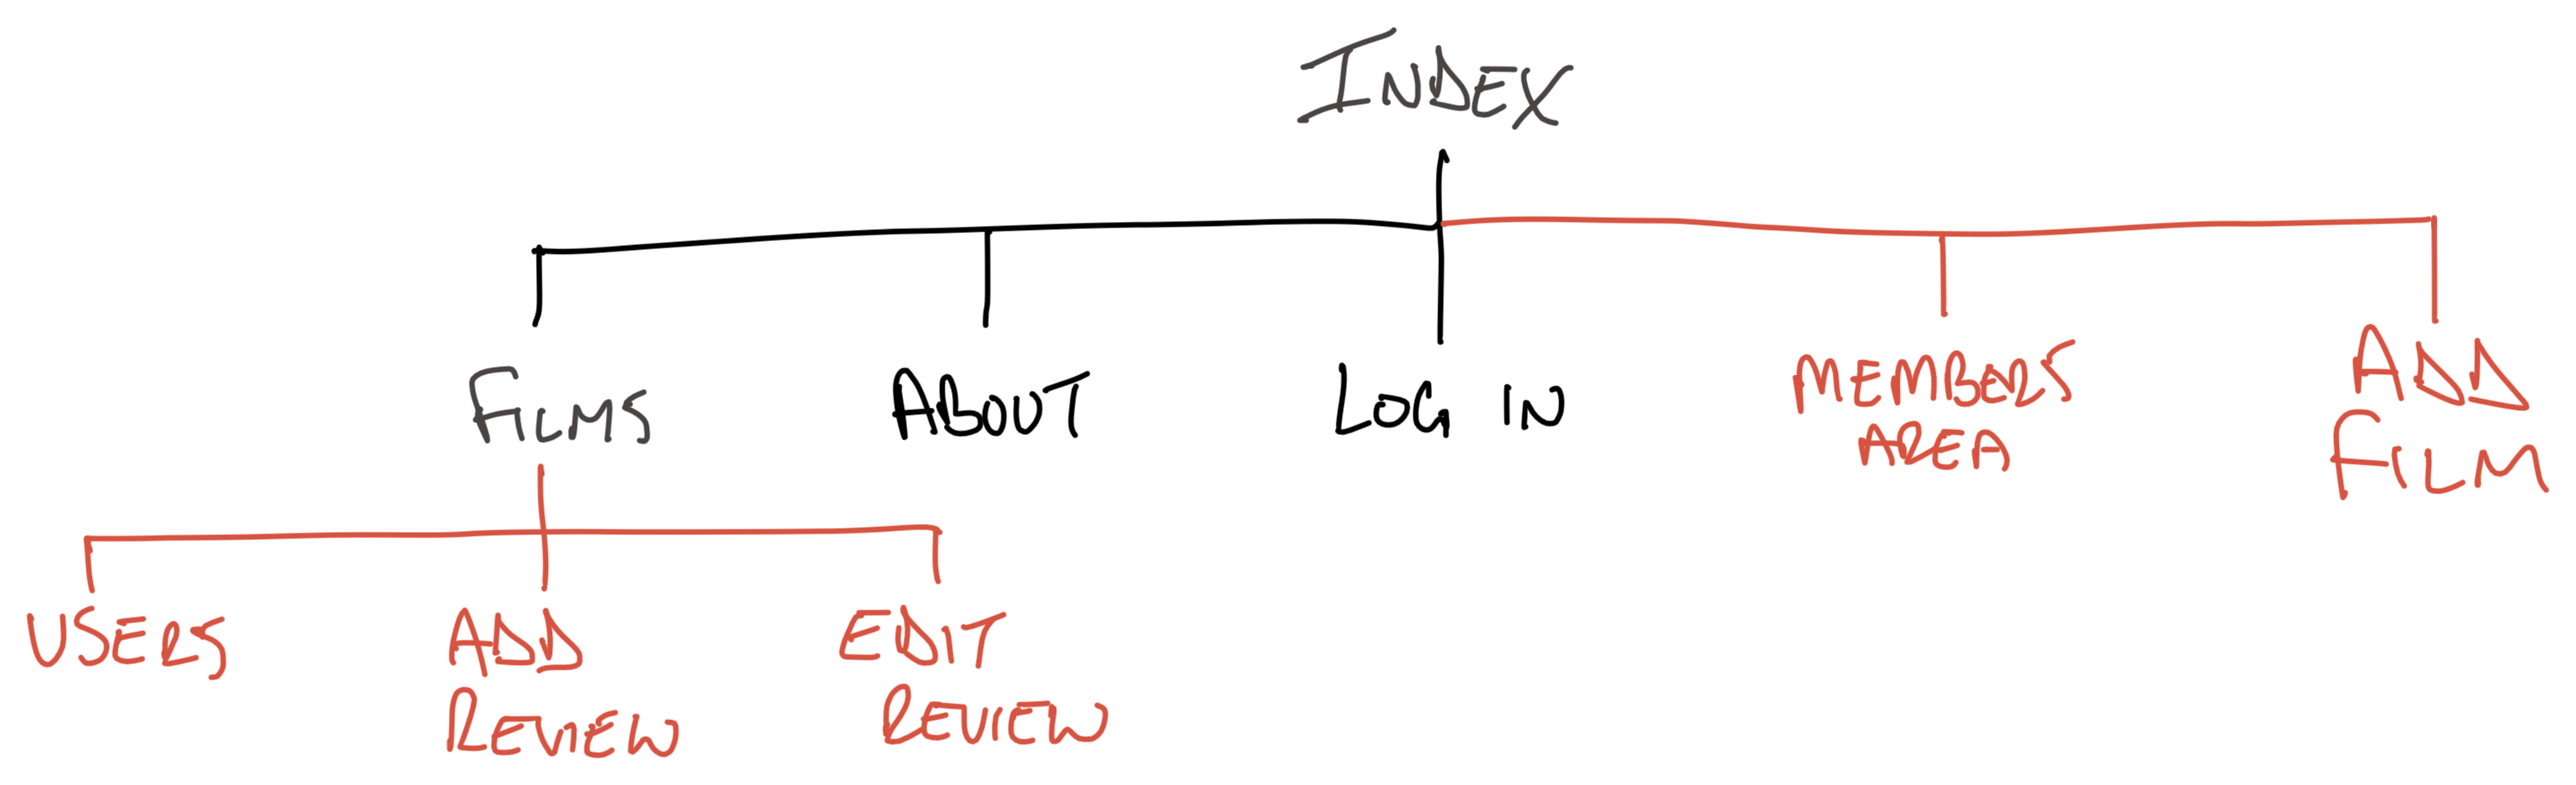 INDEX
FILMS
ABOUT
LOG IN
MEMBERS
AREA
ADD
FILM
USERS
ADD
REVIEW
EDIT
REVIEW